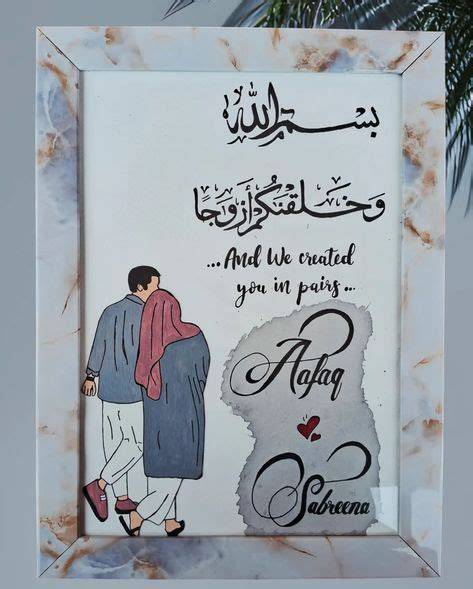 بسم الله
وَخَلَقْنَٰكُمْ أَزْوَٰجًا
...And We created
you in pairs...
Aafaq
Sabreena